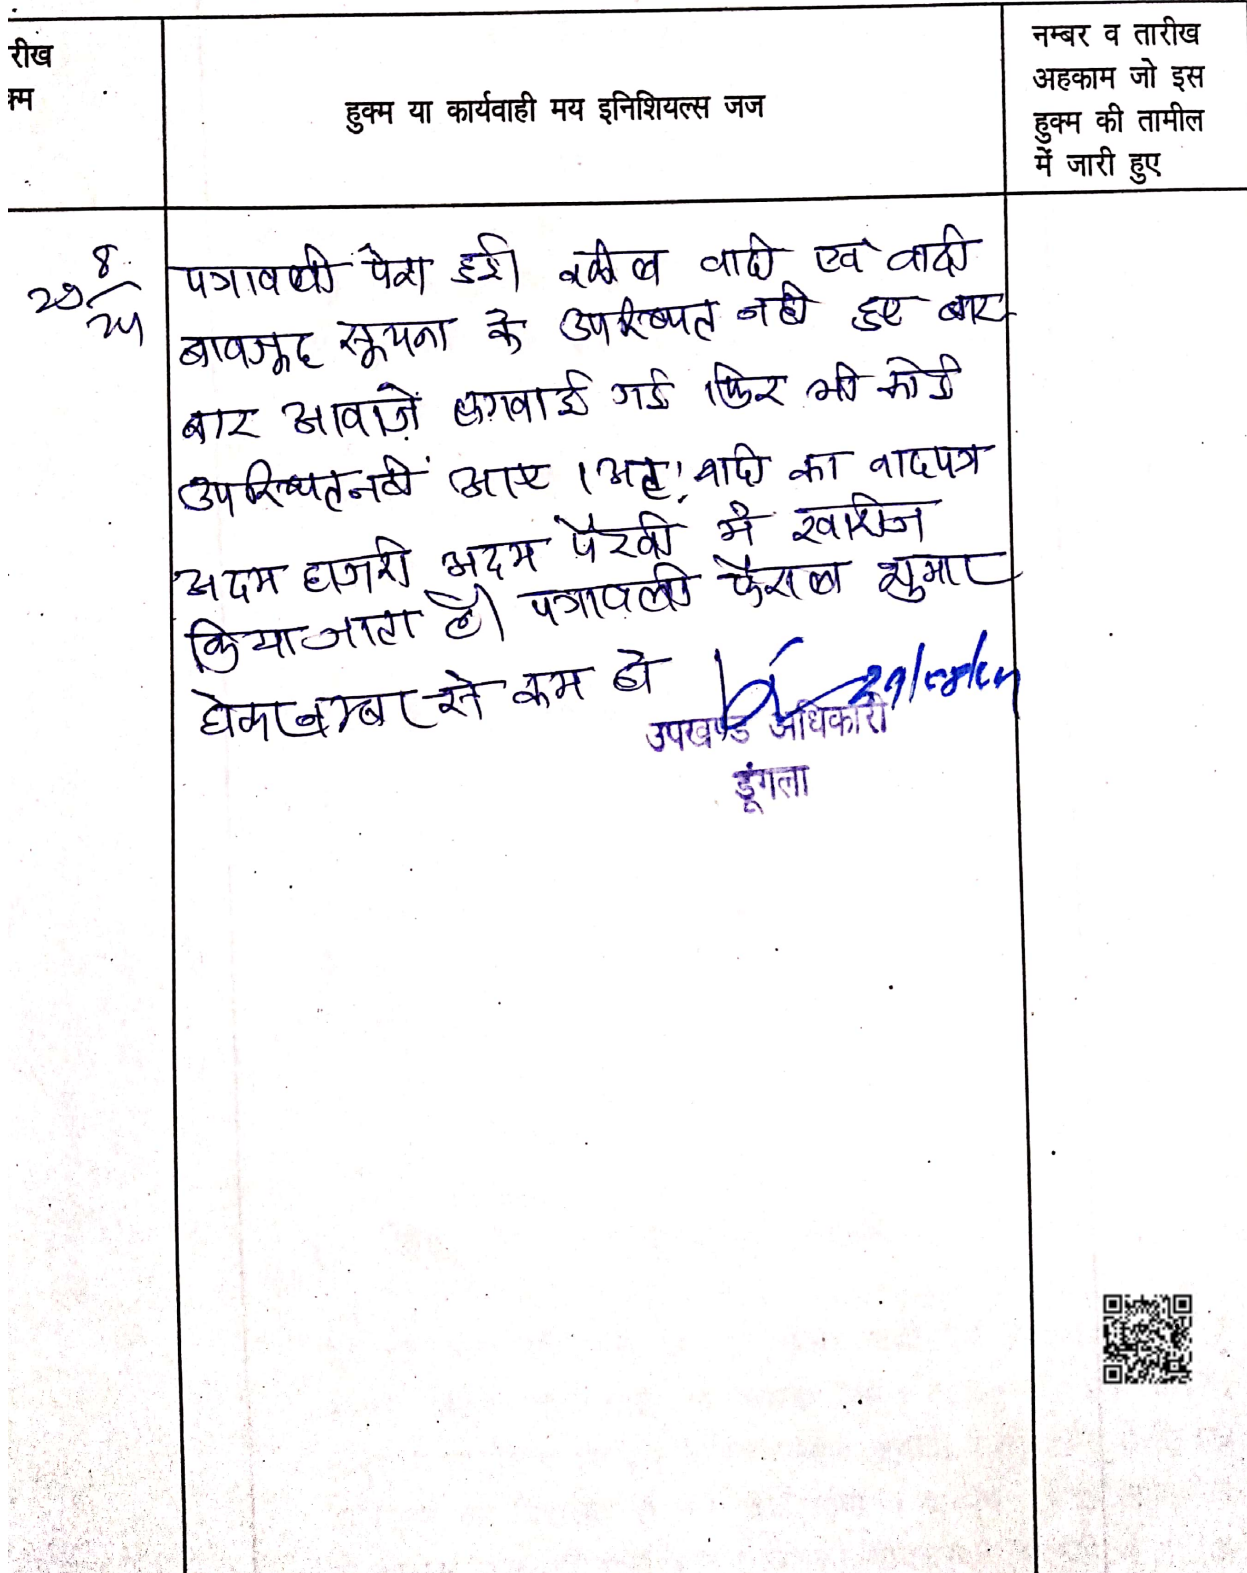 रीख
क्म
हुक्म या कार्यवाही मय इनिशियल्स जज
नम्बर व तारीख
अहकाम जो इस
हुक्म की तामील
में जारी हुए
29/8/24
पत्रावली पेश हुई। वकील वादी एवं वादी
बावजूद सूचना के उपस्थित नही हुए बार
बार आवाजें लगवाई गई । फिर भी कोई
उपस्थित नहीं आए । अतः वादी का वादपत्र
अदम हाजरी अदम पैरवी में खारिज
किया जाता है। पत्रावली फैसल शुमार
होकर नम्बर से कम हो
उपखण्ड अधिकारी
डूंगला